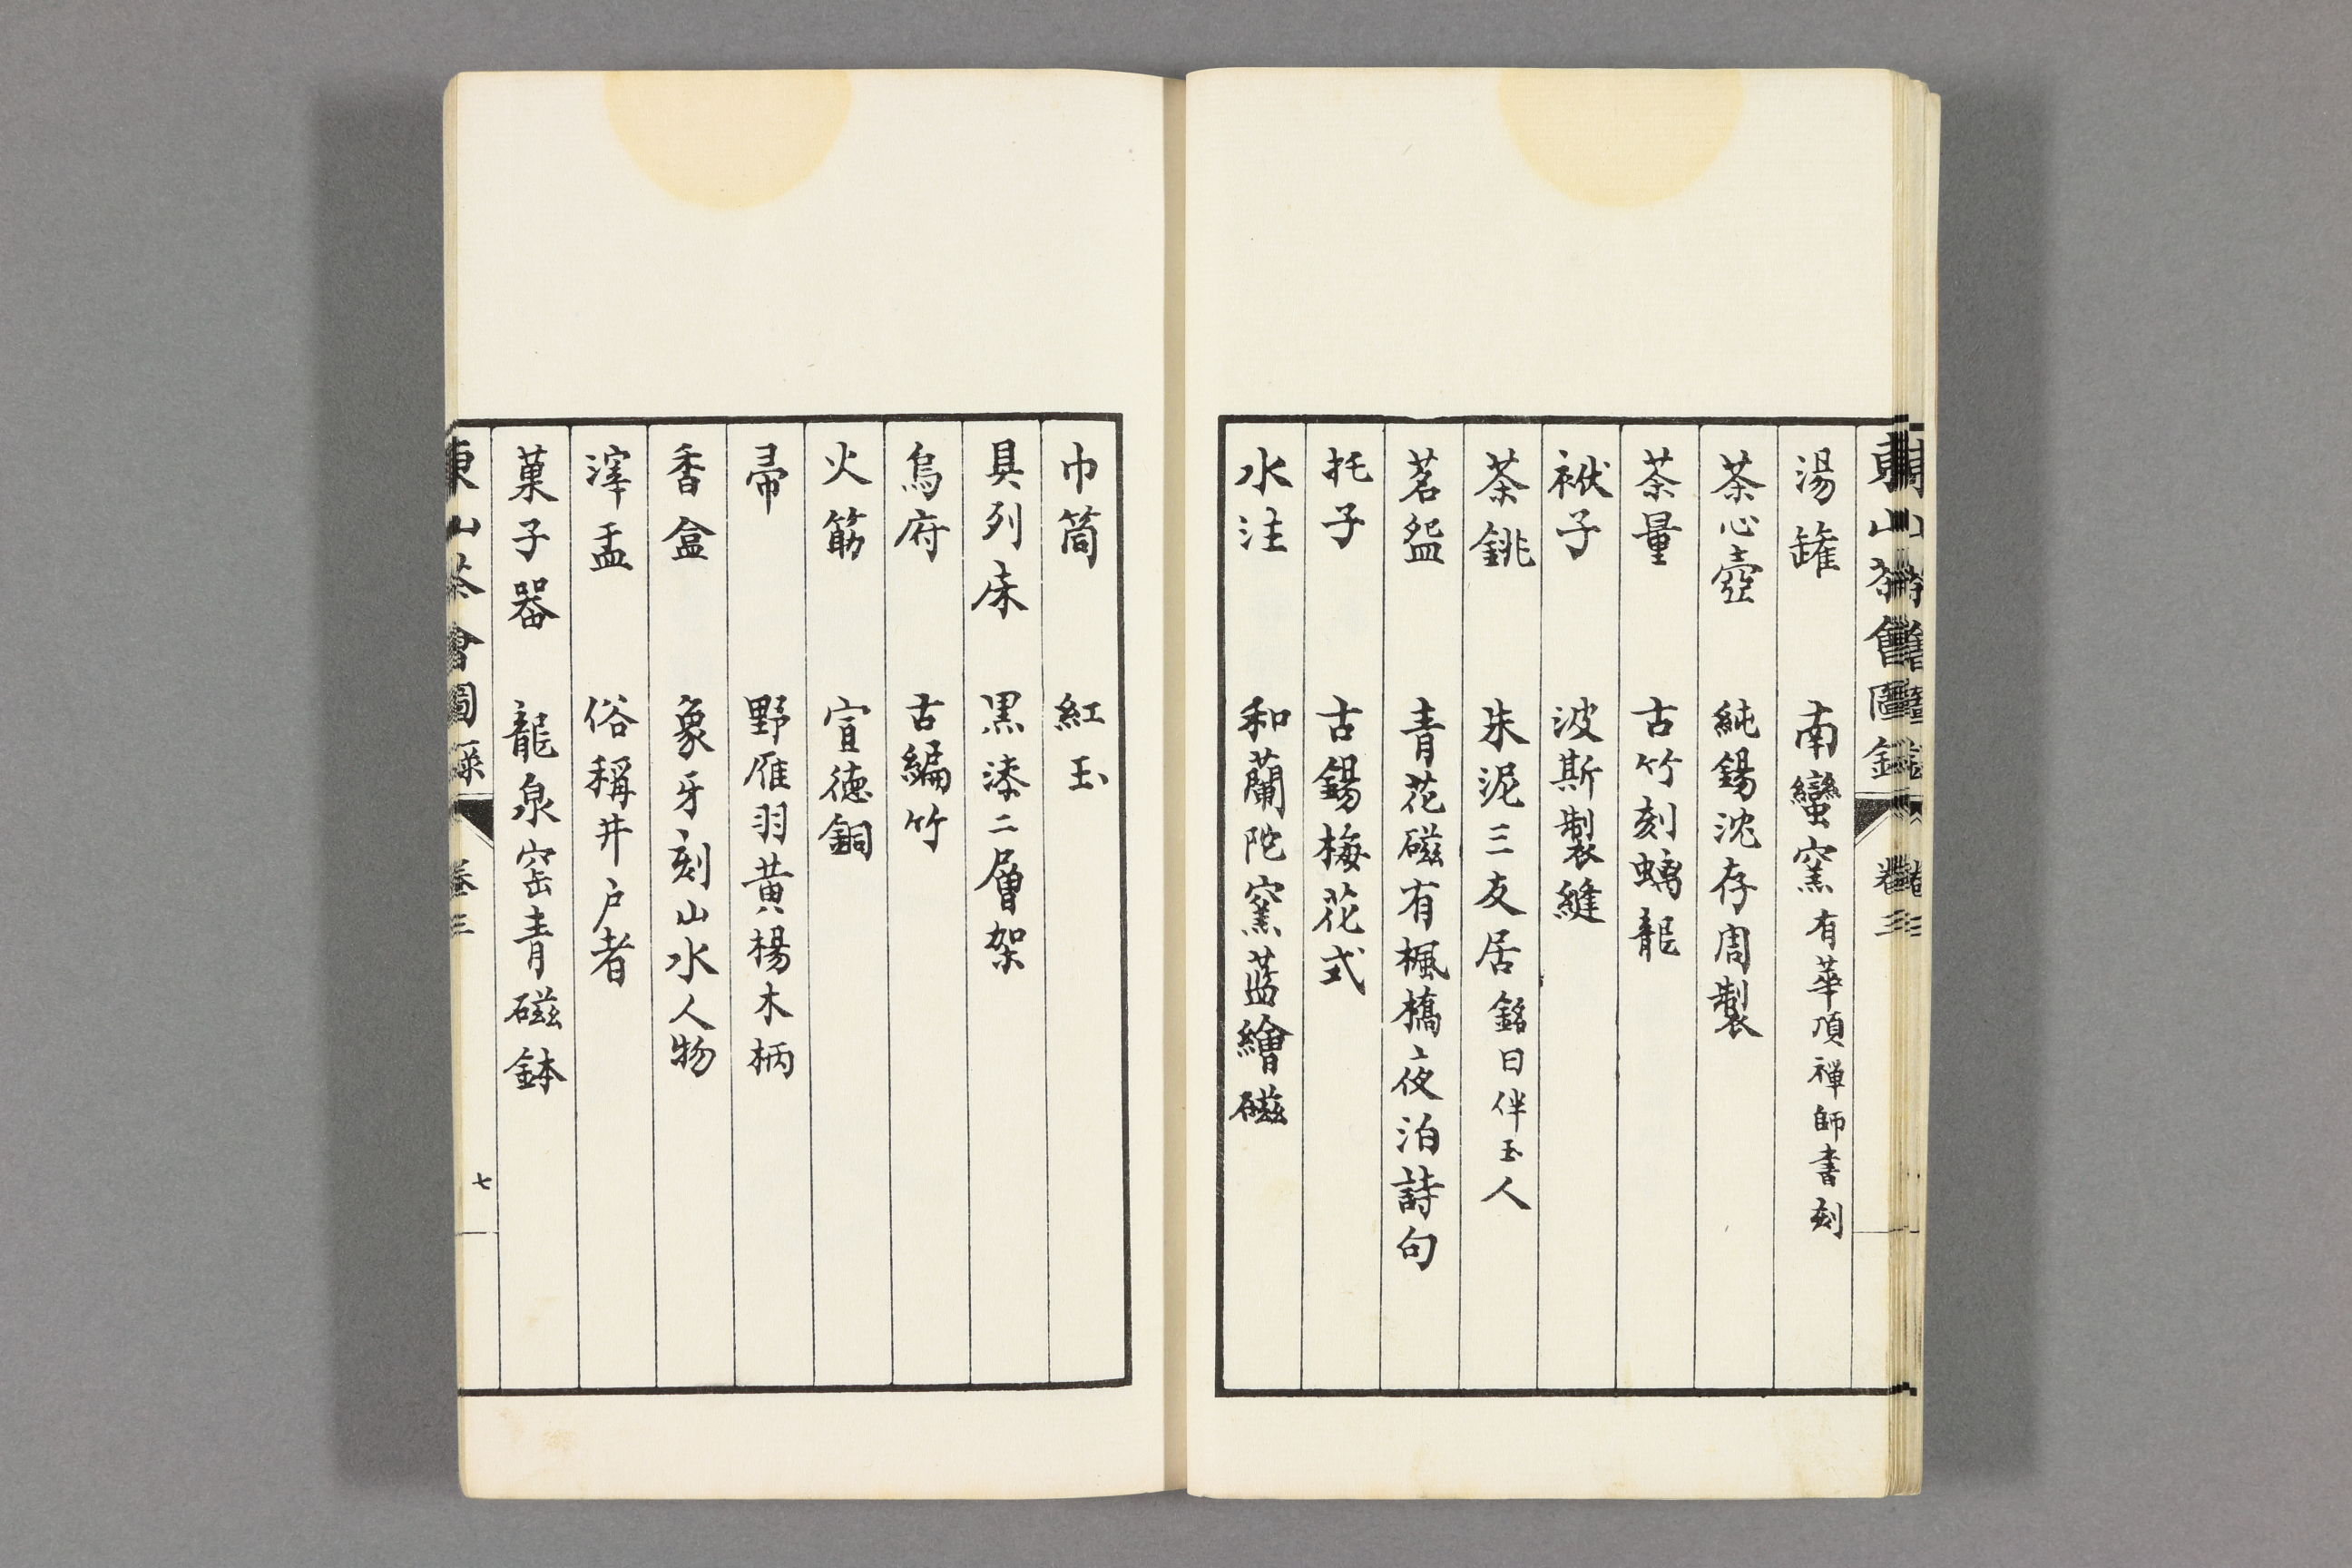 東山茶會圖錄 卷三
湯罐 南蠻窯有華頂禅師書刻
茶心壺 純錫沈存周製
茶量 古竹刻螭龍
袱子 波斯製縫
茶銚 朱泥三友居銘曰伴玉人
茗盌 青花磁有楓橋夜泊詩句
托子 古錫梅花式
水注 和蘭陀窯藍繪磁
巾筒 紅玉
具列床 黒漆二層架
烏府 古編竹
火筯 宣徳銅
帚 野雁羽黄楊木柄
香盒 象牙刻山水人物
滓盂 俗稱井戸者
菓子器 龍泉窑青磁鉢
東山茶會圖錄 卷三 七